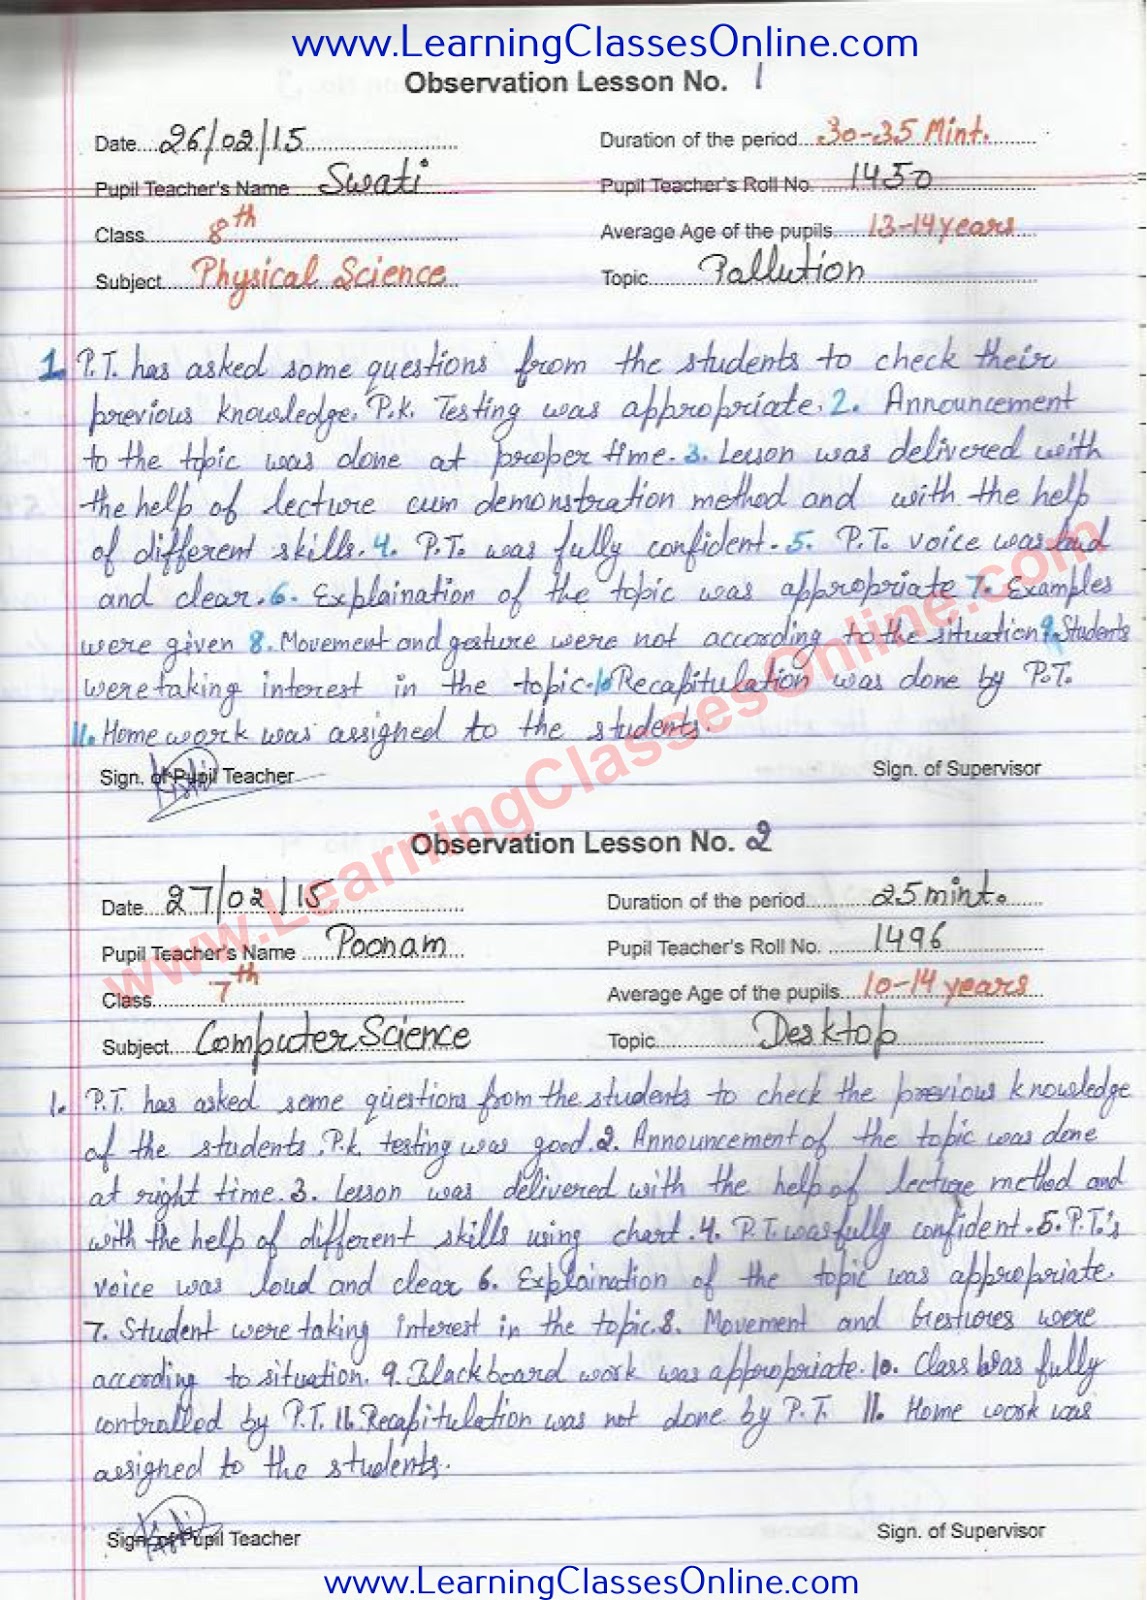 www.LearningClassesOnline.com
Observation Lesson No. 1
Date 26/02/15 Duration of the period 30-35 Mint.
Pupil Teacher's Name Swati Pupil Teacher's Roll No. 1450
Class 8th Average Age of the pupils 13-14 years
Subject Physical Science Topic Pollution
1. P.T. has asked some questions from the students to check their
previous knowledge. P.k. Testing was appropriate. 2. Announcement
to the topic was done at proper time. 3. Lesson was delivered with
the help of lecture cum demonstration method and with the help
of different skills. 4. P.T. was fully confident. 5. P.T. voice was loud
and clear. 6. Explaination of the topic was appropriate 7. Examples
were given 8. Movement and gesture were not according to the situation 9. Students
were taking interest in the topic. 10 Recapitulation was done by P.T.
11. Home work was assigned to the students.
Sign. of Pupil Teacher Sign. of Supervisor
www.LearningClassesOnline.com
Observation Lesson No. 2
Date 27/02/15 Duration of the period 25 mint.
Pupil Teacher's Name Poonam Pupil Teacher's Roll No. 1496
Class 7th Average Age of the pupils 10-14 years
Subject Computer Science Topic Desktop
1. P.T. has asked some questions from the students to check the previous knowledge
of the students. P.k. testing was good. 2. Announcement of the topic was done
at right time. 3. Lesson was delivered with the help of lecture method and
with the help of different skills using chart. 4. P.T. was fully confident. 5. P.T.'s
voice was loud and clear 6. Explaination of the topic was appropriate.
7. Student were taking interest in the topic. 8. Movement and Gestures were
according to situation. 9. Blackboard work was appropriate. 10. Class was fully
controlled by P.T. 11. Recapitulation was not done by P.T. 11. Home work was
assigned to the students.
Sign. of Pupil Teacher Sign. of Supervisor
www.LearningClassesOnline.com